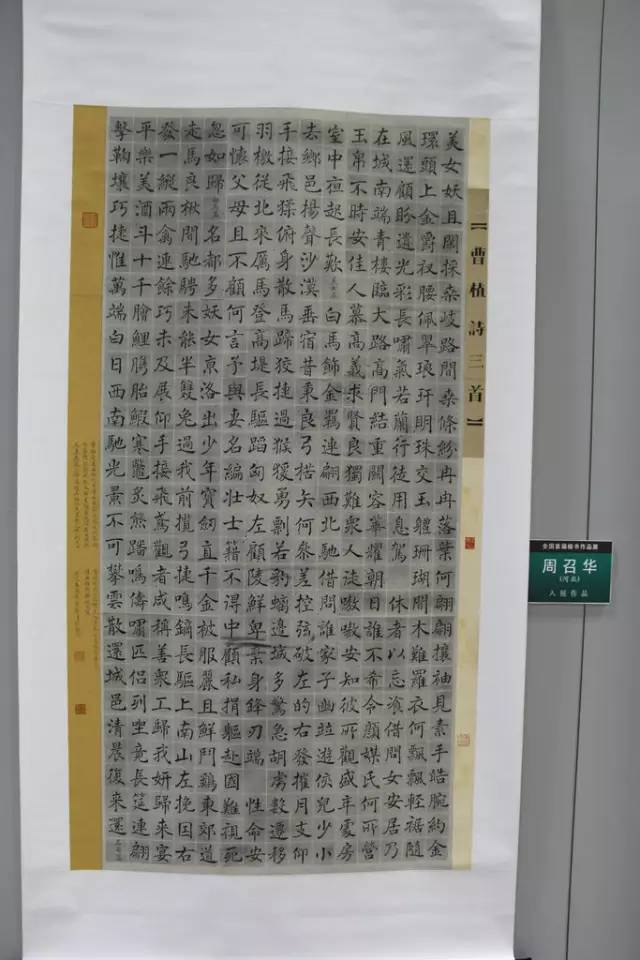 【曹植詩三首】
美女妖且閑採桑岐路間桑條紛冉冉落葉何翩翩攘袖見素手皓腕約金
環頭上金爵釵腰佩翠琅玕明珠交玉軆珊瑚間木難羅衣何飄飄輕裾隨
風還顧盼遺光彩長嘯氣若蘭行徒用息駕休者以忘湌借問女安居乃
在城南端青樓臨大路高門結重關容華耀朝日誰不希令顏媒氏何所營
玉帛不時安佳人慕高義求賢良獨難衆人徒嗷嗷安知彼所觀盛年處房
室中夜起長歎美女篇白馬飾金羈連翩西北馳借問誰家子幽並遊俠兒少小
去鄉邑揚聲沙漠垂宿昔秉良弓楛矢何參差控弦破左的右發摧月支仰
手接飛猱俯身散馬蹄狡捷過猴猨勇剽若豹螭邊城多驚急胡虜數遷移
羽檄從北來厲馬登高堤長驅蹈匈奴左顧陵鮮卑棄身鋒刃端性命安
可懷父母且不顧何言子與妻名編壯士籍不得中顧私捐軀赴國難視死
忽如歸白馬篇名都多妖女京洛出少年寶劒直千金被服麗且鮮鬥鷄東郊道
走馬長楸間馳騁未能半雙兔過我前攬弓捷鳴鏑長驅上南山左挽因右
發一縱兩禽連餘巧未及展仰手接飛鳶觀者咸稱善衆工歸我妍歸來宴
平樂美酒斗十千膾鯉臇胎鰕寒鼈炙熊蹯鳴儔嘯匹侶列坐竟長筵連翩
擊鞠壤巧捷惟萬端白日西南馳光景不可攀雲散還城邑清晨復來還名都篇
全国首届楷书作品展
周召华
(河北)
入展作品